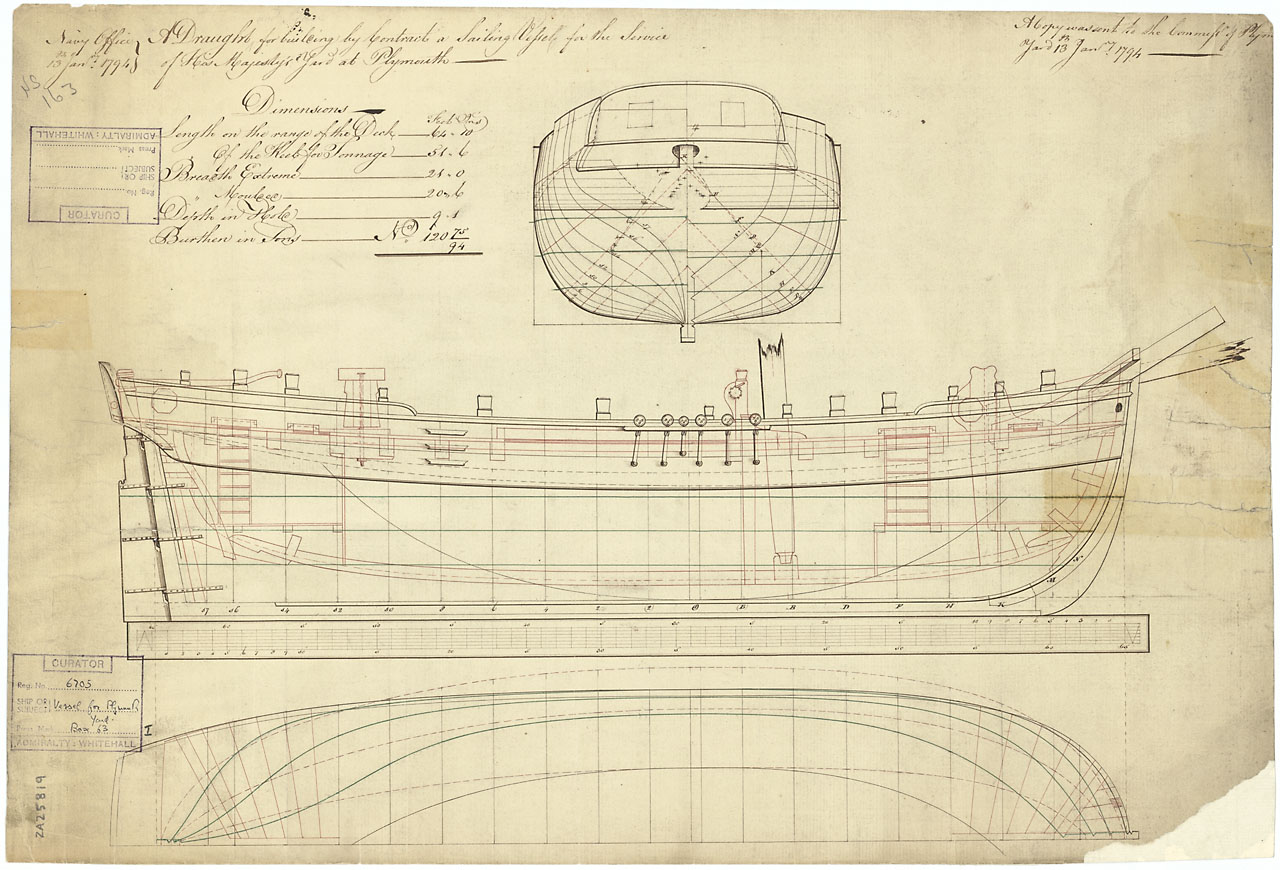 Navy Office
13th Jany. 1794
A Draught for building by Contract a Sailing Vessel for the Service
of His Majesty's Yard at Plymouth
A Copy was sent to the Commissr. of Plym
Yard 13th Jany. 1794
NS
163
Dimensions
Feet Ins
Length on the range of the Deck 64-10
Of the Keel for Tonnage 51-6
Breadth Extreme 21-0
" Moulded 20-6
Depth in Hold 9-1
Burthen in Tons No. 120 75/94
ADMIRALTY: WHITEHALL
Press Mark
SHIP OR SUBJECT
Reg. No.
CURATOR
CURATOR
Reg. No. 6705
SHIP OR SUBJECT: Vessel for Plymouth
Yard
Press Mark Box 53
ADMIRALTY: WHITEHALL
I
ZA25819